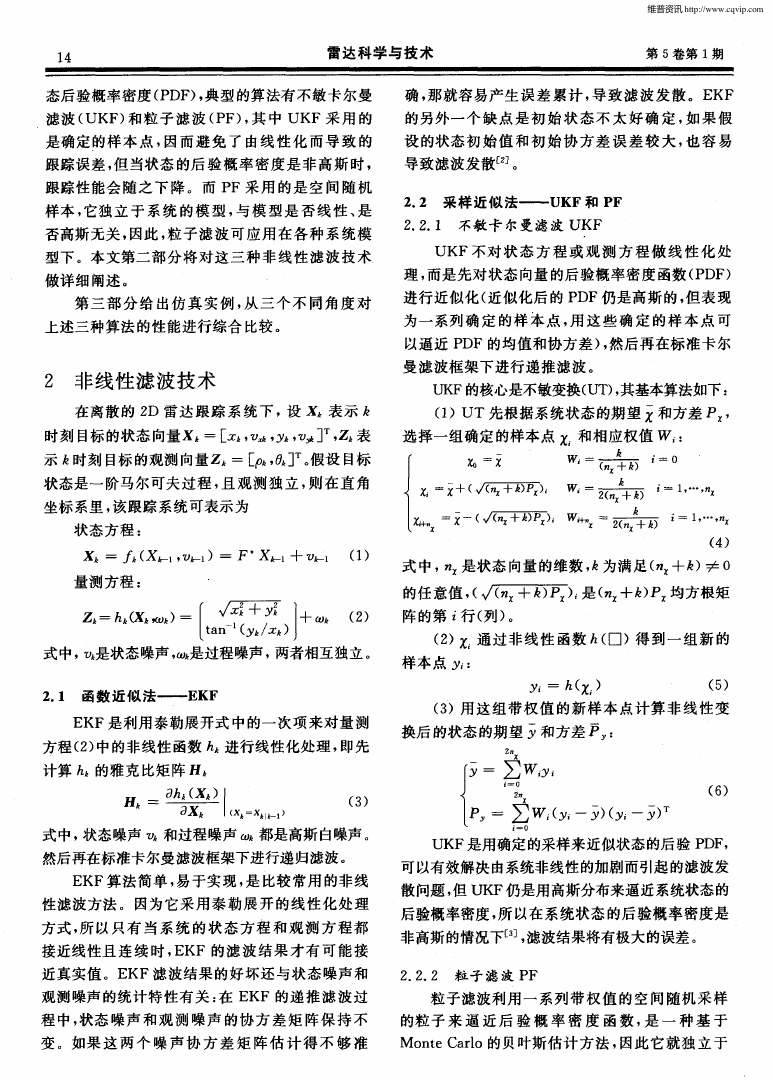 维普资讯 http://www.cqvip.com
14
雷达科学与技术
第5卷第1期
态后验概率密度(PDF),典型的算法有不敏卡尔曼
滤波(UKF)和粒子滤波(PF),其中 UKF 采用的
是确定的样本点,因而避免了由线性化而导致的
跟踪误差,但当状态的后验概率密度是非高斯时,
跟踪性能会随之下降。而 PF 采用的是空间随机
样本,它独立于系统的模型,与模型是否线性、是
否高斯无关,因此,粒子滤波可应用在各种系统模
型下。本文第二部分将对这三种非线性滤波技术
做详细阐述。
第三部分给出仿真实例,从三个不同角度对
上述三种算法的性能进行综合比较。
2 非线性滤波技术
在离散的 2D 雷达跟踪系统下,设 Xₖ 表示 k
时刻目标的状态向量Xₖ = [xₖ,vₓₖ,yₖ,vᵧₖ]ᵀ,Zₖ表
示 k时刻目标的观测向量Zₖ = [ρₖ,θₖ]ᵀ。假设目标
状态是一阶马尔可夫过程,且观测独立,则在直角
坐标系里,该跟踪系统可表示为
状态方程:
Xₖ = fₖ(Xₖ₋₁,vₖ₋₁) = F* Xₖ₋₁ + vₖ₋₁ (1)
量测方程:
Zₖ=hₖ(Xₖ,ωₖ) = [√(xₖ²+yₖ²) tan⁻¹(yₖ/xₖ)] + ωₖ (2)
式中,vₖ是状态噪声,ωₖ是过程噪声,两者相互独立。
2.1 函数近似法——EKF
EKF 是利用泰勒展开式中的一次项来对量测
方程(2)中的非线性函数 hₖ 进行线性化处理,即先
计算 hₖ 的雅克比矩阵 Hₖ
Hₖ = ∂hₖ(Xₖ)/∂Xₖ |(Xₖ=Xₖ|ₖ₋₁) (3)
式中,状态噪声 vₖ 和过程噪声 ωₖ 都是高斯白噪声。
然后再在标准卡尔曼滤波框架下进行递归滤波。
EKF 算法简单,易于实现,是比较常用的非线
性滤波方法。因为它采用泰勒展开的线性化处理
方式,所以只有当系统的状态方程和观测方程都
接近线性且连续时,EKF 的滤波结果才有可能接
近真实值。EKF 滤波结果的好坏还与状态噪声和
观测噪声的统计特性有关:在 EKF 的递推滤波过
程中,状态噪声和观测噪声的协方差矩阵保持不
变。如果这两个噪声协方差矩阵估计得不够准
确,那就容易产生误差累计,导致滤波发散。EKF
的另外一个缺点是初始状态不太好确定,如果假
设的状态初始值和初始协方差误差较大,也容易
导致滤波发散[2]。
2.2 采样近似法——UKF 和 PF
2.2.1 不敏卡尔曼滤波 UKF
UKF 不对状态方程或观测方程做线性化处
理,而是先对状态向量的后验概率密度函数(PDF)
进行近似化(近似化后的 PDF 仍是高斯的,但表现
为一系列确定的样本点,用这些确定的样本点可
以逼近 PDF 的均值和协方差),然后再在标准卡尔
曼滤波框架下进行递推滤波。
UKF 的核心是不敏变换(UT),其基本算法如下:
(1) UT 先根据系统状态的期望 χ̄ 和方差 Pχ,
选择一组确定的样本点 χᵢ 和相应权值 Wᵢ:
χ₀ = χ̄ Wᵢ = k/(nχ+k) i=0
χᵢ = χ̄+(√((nχ+k)Pχ))ᵢ Wᵢ = k/2(nχ+k) i=1,…,nχ
χᵢ₊ₙχ = χ̄−(√((nχ+k)Pχ))ᵢ Wᵢ₊ₙχ = k/2(nχ+k) i=1,…,nχ
(4)
式中,nχ 是状态向量的维数,k 为满足(nχ+k) ≠ 0
的任意值,(√((nχ+k)Pχ))ᵢ 是(nχ+k)Pχ 均方根矩
阵的第 i 行(列)。
(2) χᵢ 通过非线性函数 h(□) 得到一组新的
样本点 yᵢ:
yᵢ = h(χᵢ) (5)
(3) 用这组带权值的新样本点计算非线性变
换后的状态的期望 ȳ 和方差 P̄ᵧ:
ȳ = ∑_{i=0}^{2nχ} Wᵢyᵢ
P̄ᵧ = ∑_{i=0}^{2nχ} Wᵢ(yᵢ−ȳ)(yᵢ−ȳ)ᵀ
(6)
UKF 是用确定的采样来近似状态的后验 PDF,
可以有效解决由系统非线性的加剧而引起的滤波发
散问题,但 UKF 仍是用高斯分布来逼近系统状态的
后验概率密度,所以在系统状态的后验概率密度是
非高斯的情况下[3],滤波结果将有极大的误差。
2.2.2 粒子滤波 PF
粒子滤波利用一系列带权值的空间随机采样
的粒子来逼近后验概率密度函数,是一种基于
Monte Carlo 的贝叶斯估计方法,因此它就独立于